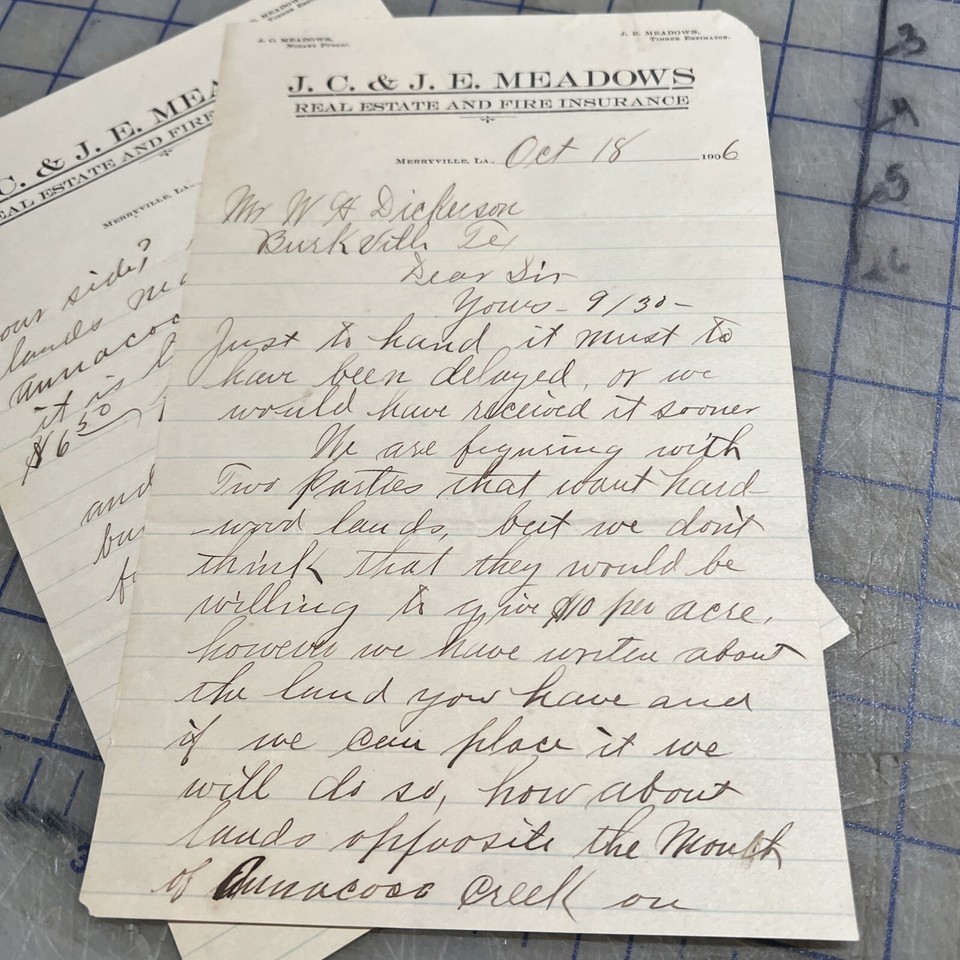 J. C. MEADOWS,
NOTARY PUBLIC.
J. E. MEADOWS,
TIMBER ESTIMATOR.
J. C. & J. E. MEADOWS
REAL ESTATE AND FIRE INSURANCE
MERRYVILLE, LA., Oct 18 1906
Mr W H Dickerson
Burkville Tex
Dear Sir
Yours - 9/30 -
Just to hand it must to
have been delayed, or we
would have received it sooner
We are figuring with
Two parties that want hard
-wood lands, but we don't
think that they would be
willing to give $10 per acre,
however we have written about
the land you have and
if we can place it we
will do so, how about
lands opposite the Mouth
of Annacoco Creek on
C. & J. E. MEA
EAL ESTATE AND FIRE
MERRYVILLE, LA.,
our side?
lands
annacoc
it is
$6 50
and
bu
3
4
5
6
3